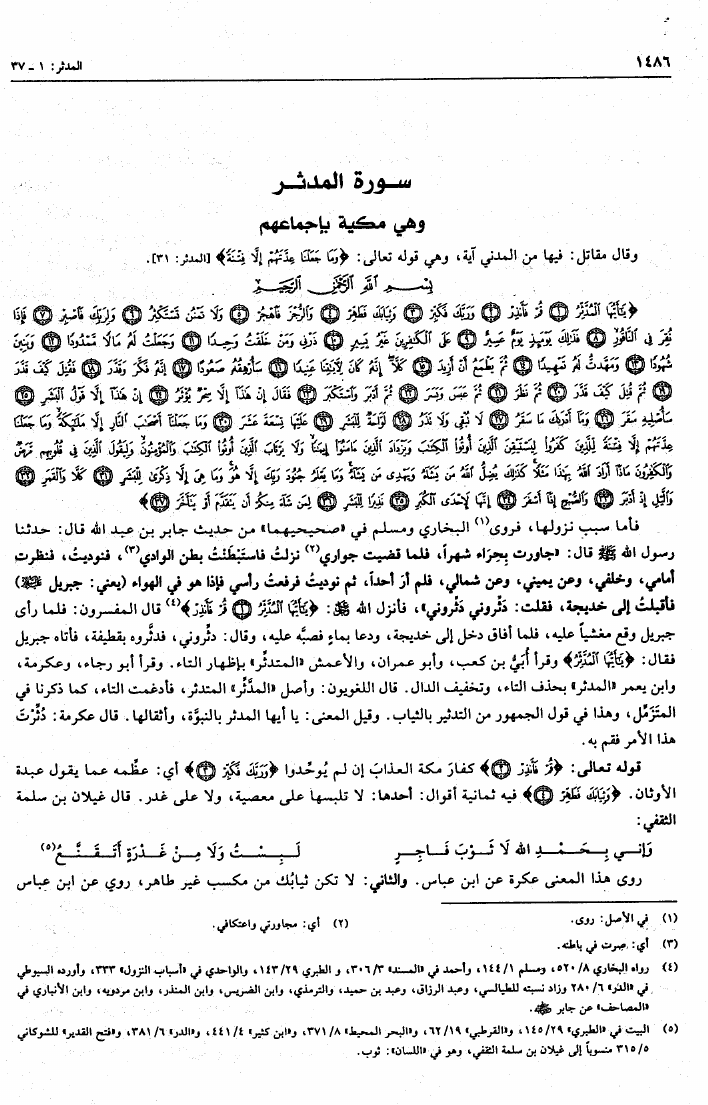 ١٤٨٦
المدثر: ١ - ٣٧
سورة المدثر
وهي مكية بإجماعهم
وقال مقاتل: فيها من المدني آية، وهي قوله تعالى: ﴿وَمَا جَعَلْنَا عِدَّتَهُمْ إِلَّا فِتْنَةً﴾ [المدثر: ٣١].
بِسْمِ اللَّهِ الرَّحْمَنِ الرَّحِيمِ
﴿يَٰٓأَيُّهَا ٱلْمُدَّثِّرُ ﴿١﴾ قُمْ فَأَنذِرْ ﴿٢﴾ وَرَبَّكَ فَكَبِّرْ ﴿٣﴾ وَثِيَابَكَ فَطَهِّرْ ﴿٤﴾ وَٱلرُّجْزَ فَٱهْجُرْ ﴿٥﴾ وَلَا تَمْنُن تَسْتَكْثِرُ ﴿٦﴾ وَلِرَبِّكَ فَٱصْبِرْ ﴿٧﴾ فَإِذَا
نُقِرَ فِي ٱلنَّاقُورِ ﴿٨﴾ فَذَٰلِكَ يَوْمَئِذٍ يَوْمٌ عَسِيرٌ ﴿٩﴾ عَلَى ٱلْكَٰفِرِينَ غَيْرُ يَسِيرٍ ﴿١٠﴾ ذَرْنِي وَمَنْ خَلَقْتُ وَحِيدًا ﴿١١﴾ وَجَعَلْتُ لَهُۥ مَالًا مَّمْدُودًا ﴿١٢﴾ وَبَنِينَ
شُهُودًا ﴿١٣﴾ وَمَهَّدتُّ لَهُۥ تَمْهِيدًا ﴿١٤﴾ ثُمَّ يَطْمَعُ أَنْ أَزِيدَ ﴿١٥﴾ كَلَّآ إِنَّهُۥ كَانَ لِءَايَٰتِنَا عَنِيدًا ﴿١٦﴾ سَأُرْهِقُهُۥ صَعُودًا ﴿١٧﴾ إِنَّهُۥ فَكَّرَ وَقَدَّرَ ﴿١٨﴾ فَقُتِلَ كَيْفَ قَدَّرَ
﴿١٩﴾ ثُمَّ قُتِلَ كَيْفَ قَدَّرَ ﴿٢٠﴾ ثُمَّ نَظَرَ ﴿٢١﴾ ثُمَّ عَبَسَ وَبَسَرَ ﴿٢٢﴾ ثُمَّ أَدْبَرَ وَٱسْتَكْبَرَ ﴿٢٣﴾ فَقَالَ إِنْ هَٰذَآ إِلَّا سِحْرٌ يُؤْثَرُ ﴿٢٤﴾ إِنْ هَٰذَآ إِلَّا قَوْلُ ٱلْبَشَرِ ﴿٢٥﴾
سَأُصْلِيهِ سَقَرَ ﴿٢٦﴾ وَمَآ أَدْرَىٰكَ مَا سَقَرُ ﴿٢٧﴾ لَا تُبْقِي وَلَا تَذَرُ ﴿٢٨﴾ لَوَّاحَةٌ لِّلْبَشَرِ ﴿٢٩﴾ عَلَيْهَا تِسْعَةَ عَشَرَ ﴿٣٠﴾ وَمَا جَعَلْنَآ أَصْحَٰبَ ٱلنَّارِ إِلَّا مَلَٰٓئِكَةً وَمَا جَعَلْنَا
عِدَّتَهُمْ إِلَّا فِتْنَةً لِّلَّذِينَ كَفَرُوا۟ لِيَسْتَيْقِنَ ٱلَّذِينَ أُوتُوا۟ ٱلْكِتَٰبَ وَيَزْدَادَ ٱلَّذِينَ ءَامَنُوٓا۟ إِيمَٰنًا وَلَا يَرْتَابَ ٱلَّذِينَ أُوتُوا۟ ٱلْكِتَٰبَ وَٱلْمُؤْمِنُونَ وَلِيَقُولَ ٱلَّذِينَ فِي قُلُوبِهِم مَّرَضٌ
وَٱلْكَٰفِرُونَ مَاذَآ أَرَادَ ٱللَّهُ بِهَٰذَا مَثَلًا كَذَٰلِكَ يُضِلُّ ٱللَّهُ مَن يَشَآءُ وَيَهْدِي مَن يَشَآءُ وَمَا يَعْلَمُ جُنُودَ رَبِّكَ إِلَّا هُوَ وَمَا هِيَ إِلَّا ذِكْرَىٰ لِلْبَشَرِ ﴿٣١﴾ كَلَّا وَٱلْقَمَرِ ﴿٣٢﴾
وَٱلَّيْلِ إِذْ أَدْبَرَ ﴿٣٣﴾ وَٱلصُّبْحِ إِذَآ أَسْفَرَ ﴿٣٤﴾ إِنَّهَا لَإِحْدَى ٱلْكُبَرِ ﴿٣٥﴾ نَذِيرًا لِّلْبَشَرِ ﴿٣٦﴾ لِمَن شَآءَ مِنكُمْ أَن يَتَقَدَّمَ أَوْ يَتَأَخَّرَ ﴿٣٧﴾﴾
فأما سبب نزولها، فروى(١) البخاري ومسلم في «صحيحيهما» من حديث جابر بن عبد الله قال: حدثنا
رسول الله ﷺ قال: «جاورت بِحِرَاء شهراً، فلما قضيت جواري(٢) نزلتُ فاستَبْطَنْتُ بطن الوادي(٣)، فنوديتُ، فنظرت
أمامي، وخلفي، وعن يميني، وعن شمالي، فلم أرَ أحداً، ثم نوديتُ فرفعتُ رأسي فإذا هو في الهواء (يعني: جبريل ﷺ)
فأقبلتُ إلى خديجة، فقلت: دَثِّروني دَثِّروني»، فأنزل الله ﷺ: ﴿يَٰٓأَيُّهَا ٱلْمُدَّثِّرُ ﴿١﴾ قُمْ فَأَنذِرْ﴾(٤) قال المفسرون: فلما رأى
جبريل وقع مغشياً عليه، فلما أفاق دخل إلى خديجة، ودعا بماءٍ فصبَّه عليه، وقال: دثِّروني، فدثَّروه بقطيفة، فأتاه جبريل
فقال: ﴿يَٰٓأَيُّهَا ٱلْمُدَّثِّرُ﴾ وقرأ أُبَيُّ بن كعب، وأبو عمران، والأعمش «المتدثِّر» بإظهار التاء. وقرأ أبو رجاء، وعكرمة،
وابن يعمر «المدثر» بحذف التاء، وتخفيف الدال. قال اللغويون: وأصل «المدَّثِّر» المتدثر، فأدغمت التاء، كما ذكرنا في
المتَزمِّل، وهذا في قول الجمهور من التدثير بالثياب. وقيل المعنى: يا أيها المدثر بالنبوَّة، وأثقالها. قال عكرمة: دُثِّرْتَ
هذا الأمر فقم به.
قوله تعالى: ﴿قُمْ فَأَنذِرْ ﴿٢﴾﴾ كفارَ مكة العذابَ إن لم يُوحِّدوا ﴿وَرَبَّكَ فَكَبِّرْ ﴿٣﴾﴾ أي: عظِّمه عما يقول عبدة
الأوثان. ﴿وَثِيَابَكَ فَطَهِّرْ ﴿٤﴾﴾ فيه ثمانية أقوال: أحدها: لا تلبسها على معصية، ولا على غدر. قال غيلان بن سلمة
الثقفي:
وَإني بِحَمْدِ الله لَا ثَوْبَ فَاجِرٍ لَبِسْتُ وَلَا مِنْ غَدْرَةٍ أَتَقَنَّعُ(٥)
روى هذا المعنى عكرة عن ابن عباس. والثاني: لا تكن ثيابُك من مكسب غير طاهر، روي عن ابن عباس
(١) في الأصل: روى.
(٢) أي: مجاورتي واعتكافي.
(٣) أي: صرت في باطنه.
(٤) رواه البخاري ٥٢٠/٨، ومسلم ١٤٤/١، وأحمد في «المسند» ٣٠٦/٣، و الطبري ١٤٣/٢٩، والواحدي في «أسباب النزول» ٣٣٣، وأورده السيوطي
في «الدر» ٢٨٠/٦ وزاد نسبته للطيالسي، وعبد الرزاق، وعبد بن حميد، والترمذي، وابن الضريس، وابن المنذر، وابن مردويه، وابن الأنباري في
«المصاحف» عن جابر
(٥) البيت في «الطبري» ١٤٥/٢٩، و«القرطبي» ٦٢/١٩، و«البحر المحيط» ٣٧١/٨، و«ابن كثير» ٤٤١/٤، و«الدر» ٣٨١/٦، و«فتح القدير» للشوكاني
٣١٥/٥ منسوباً إلى غيلان بن سلمة الثقفي، وهو في «اللسان»: ثوب.